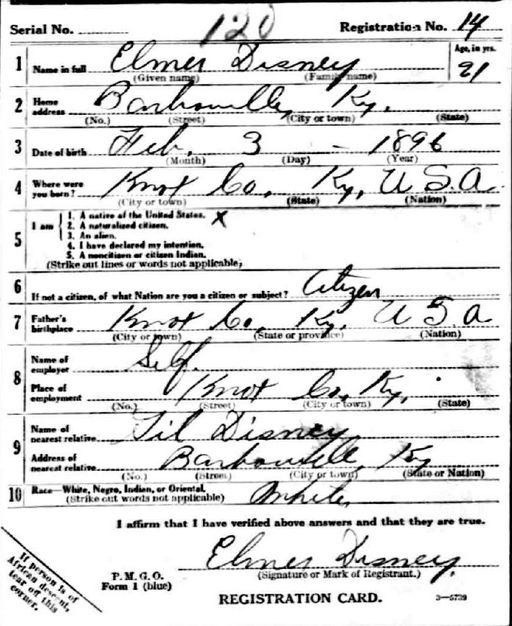 Serial No. 120 Registration No. 14
1 Name in full Elmer Disney Age, in yrs.
(Given name) (Family name) 21
2 Home address Barbourville, Ky.
(No.) (Street) (City or town) (State)
3 Date of birth Feb. 3 - 1896
(Month) (Day) (Year)
4 Where were you born? Knox Co. Ky, U S A
(City or town) (State) (Nation)
5 I am
1. A native of the United States. X
2. A naturalized citizen.
3. An alien.
4. I have declared my intention.
5. A noncitizen or citizen Indian.
(Strike out lines or words not applicable)
6 If not a citizen, of what Nation are you a citizen or subject? Citizen
7 Father's birthplace Knox Co, Ky. U S A
(City or town) (State or province) (Nation)
8 Name of employer Self.
Place of employment Knox Co, Ky.
(No.) (Street) (City or town) (State)
9 Name of nearest relative Disney
Address of nearest relative Barbourville, Ky
(No.) (Street) (City or town) (State or Nation)
10 Race—White, Negro, Indian, or Oriental. White
(Strike out words not applicable)
I affirm that I have verified above answers and that they are true.
Elmer Disney.
P. M. G. O. (Signature or Mark of Registrant.)
Form 1 (blue) 3—5739
REGISTRATION CARD.
If person is of
African descent,
tear off this
corner.